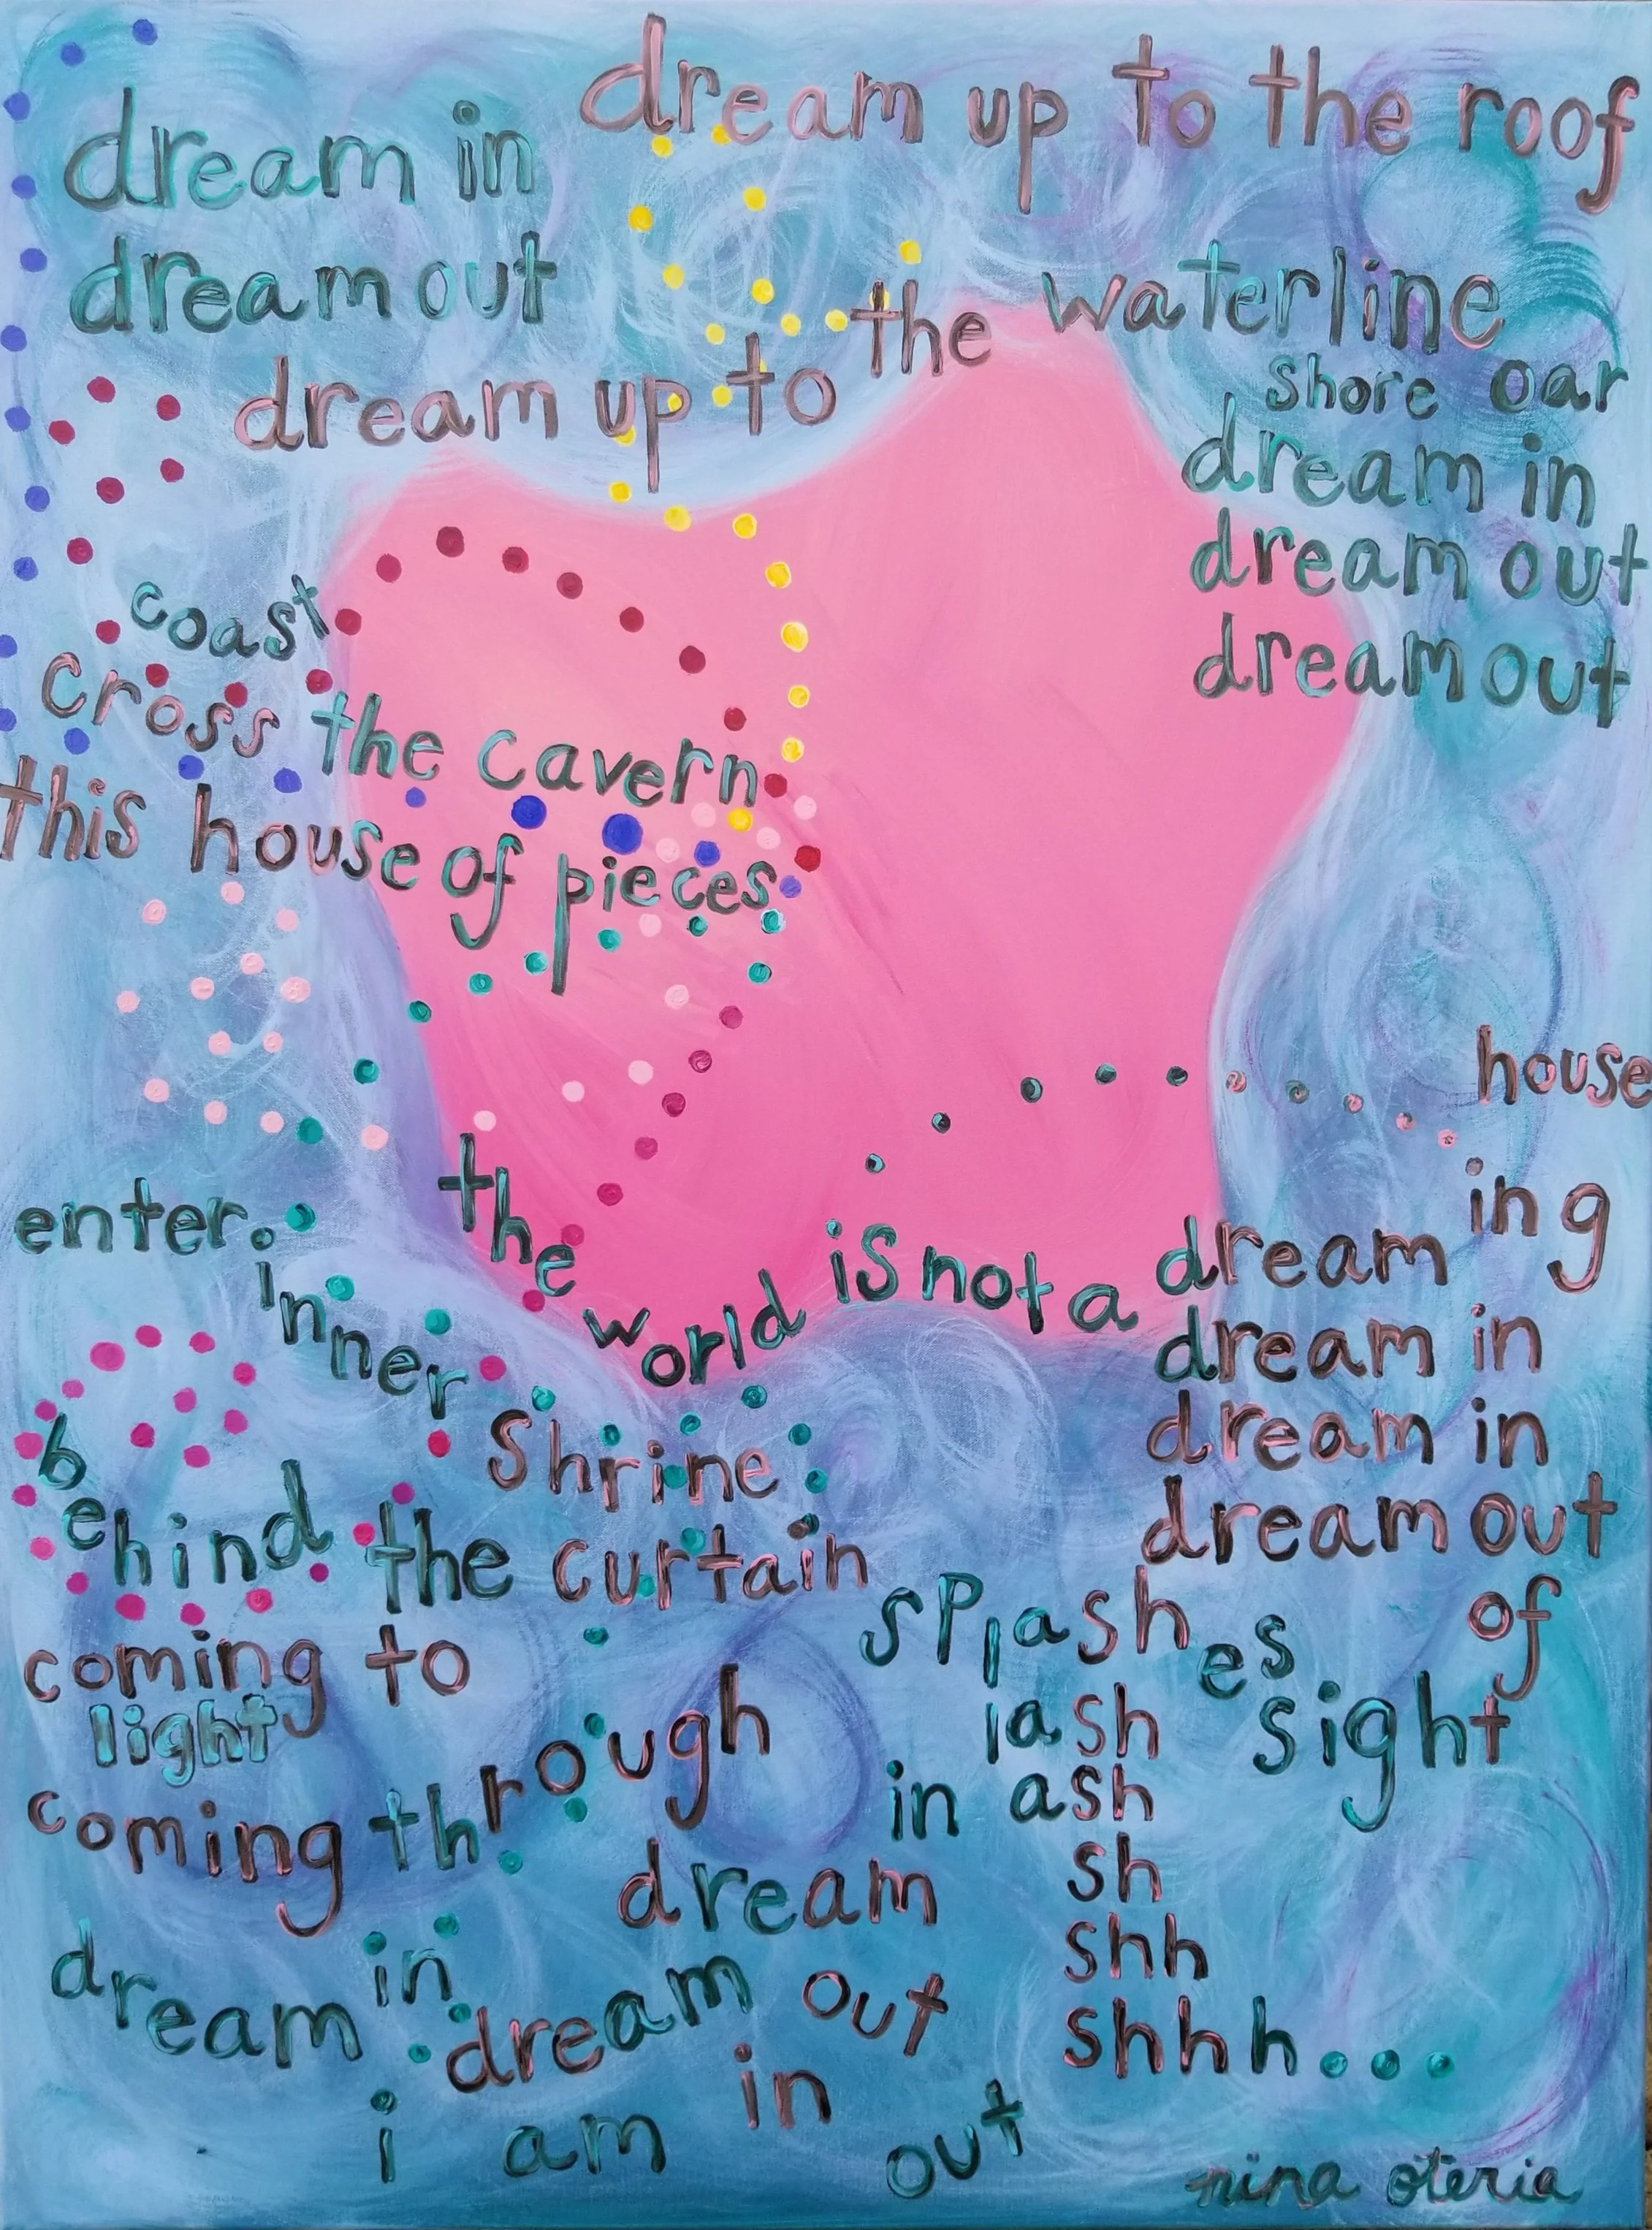 dream up to the roof
dream in
dream out
dream up to the waterline
shore oar
dream in
dream out
dream out
coast
cross the cavern
this house of pieces
house
enter.
inner
shrine
the world is not a dreaming
dream in
dream in
dream out
behind the curtain
coming to
light
coming through
splashes of
lash sight
in ash
sh
shh
shhh...
dream
dream in
dream out
in
i am
out
nina oteria